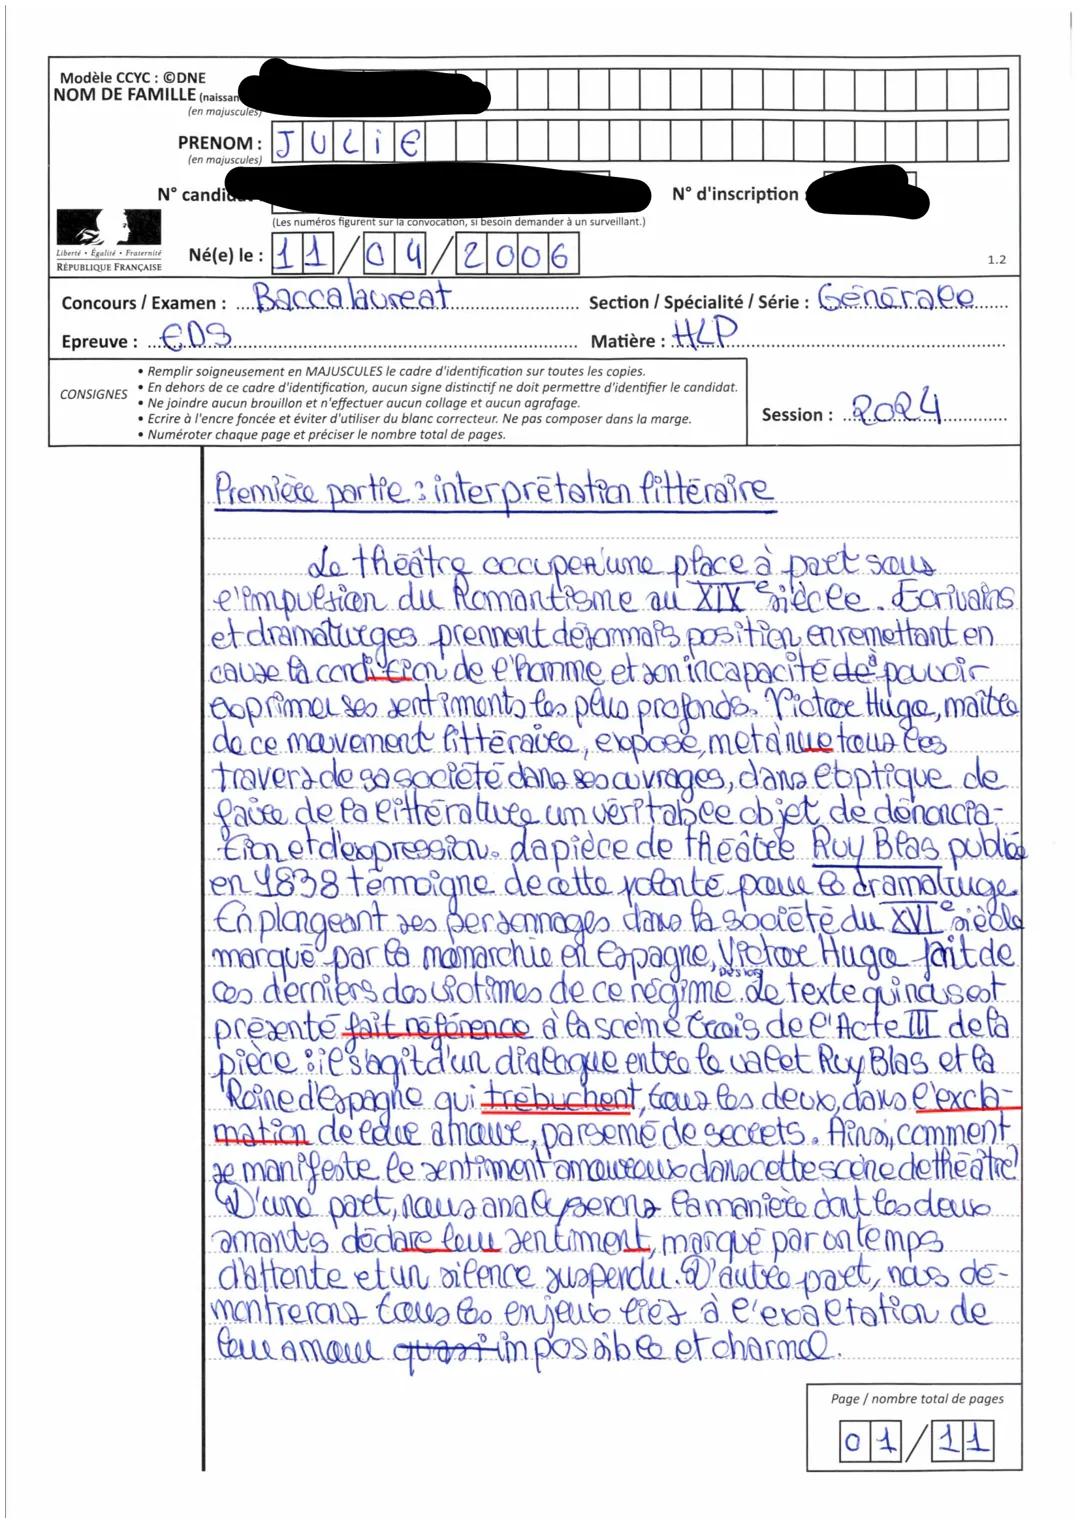 Modèle CCYC : ©DNE
NOM DE FAMILLE (naissan
(en majuscules)
PRENOM : JULIE
(en majuscules)
N° candi
N° d'inscription :
(Les numéros figurent sur la convocation, si besoin demander à un surveillant.)
Liberté • Égalité • Fraternité
RÉPUBLIQUE FRANÇAISE
Né(e) le : 11/04/2006
1.2
Concours / Examen : Baccalaureat Section / Spécialité / Série : Générale
Epreuve : EDS Matière : HLP
CONSIGNES
• Remplir soigneusement en MAJUSCULES le cadre d'identification sur toutes les copies.
• En dehors de ce cadre d'identification, aucun signe distinctif ne doit permettre d'identifier le candidat.
• Ne joindre aucun brouillon et n'effectuer aucun collage et aucun agrafage.
• Ecrire à l'encre foncée et éviter d'utiliser du blanc correcteur. Ne pas composer dans la marge.
• Numéroter chaque page et préciser le nombre total de pages.
Session : 2024
Première partie : interprétation littéraire
Le théâtre occupe une place à part sous
l'impulsion du Romantisme au XIXe siècle. Ecrivains
et dramaturges prennent désormais position en remettant en
cause la condition de l'homme et son incapacité à pouvoir
exprimer ses sentiments les plus profonds. Victor Hugo, maître
de ce mouvement littéraire, expose, met à nue tous les
travers de sa société dans ses ouvrages, dans l'optique de
faire de la littérature un véritable objet de dénoncia-
tion et d'expression. La pièce de théâtre Ruy Blas publiée
en 1838 témoigne de cette volonté pour le dramaturge.
En plongeant ses personnages dans la société du XVIe siècle
marqué par la monarchie en Espagne, Victor Hugo fait de
ces derniers des victimes de ce régime. Le texte qui nous est
présenté fait référence à la scène trois de l'Acte III de la
pièce : il s'agit d'un dialogue entre le valet Ruy Blas et la
Reine d'Espagne qui trébuchent, tous les deux, dans l'excla-
mation de leur amour, parsemé de secrets. Ainsi, comment
se manifeste le sentiment amoureux dans cette scène de théâtre?
D'une part, nous analyserons la manière dont les deux
amants déclare leur sentiment, marqué par un temps
d'attente et un silence suspendu. D'autre part, nous dé-
montrerons tous les enjeux liés à l'exaltation de
leur amour quasi impossible et charnel.
Page / nombre total de pages
01/11